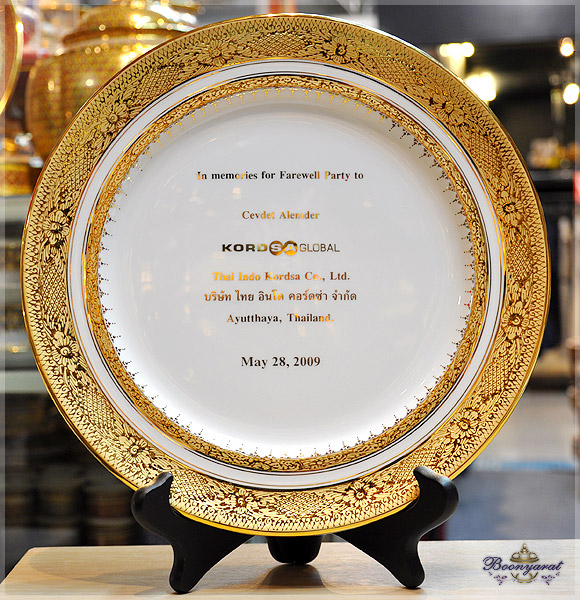 In memories for Farewell Party to
Cevdet Alemder
KORDSA GLOBAL
Thai Indo Kordsa Co., Ltd.
บริษัท ไทย อินโด คอร์ดซ่า จำกัด
Ayutthaya, Thailand.
May 28, 2009
Boonyarat